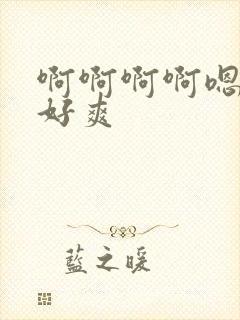 啊啊啊啊嗯
好爽
藍之暖